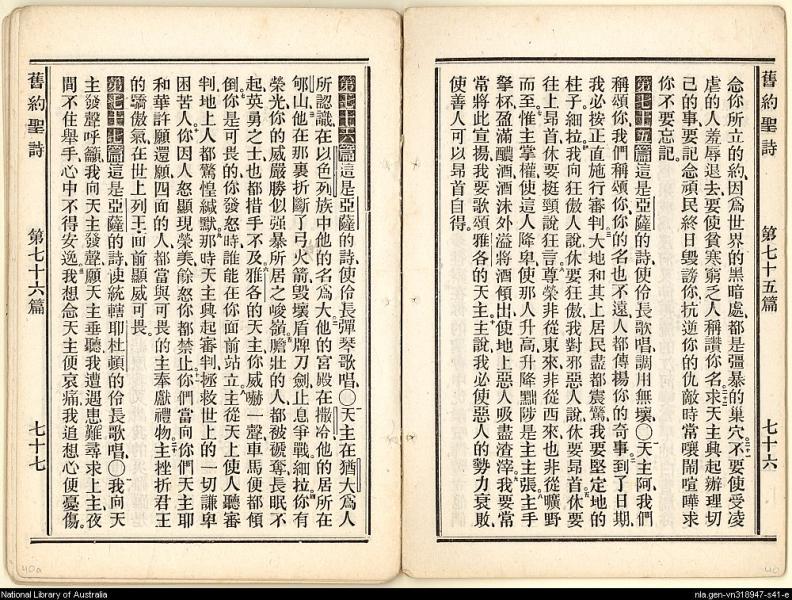 舊約聖詩
第七十五篇
七十六
念你所立的約因爲世界的黑暗處都是彊暴的巢穴不要使受凌
虐的人羞辱退去要使貧寒窮乏人稱讚你名求天主興起辦理切
己的事要記念頑民終日毀謗你抗逆你的仇敵時常嚷鬧喧嘩求
你不要忘記
第七十五篇這是亞薩的詩使伶長歌唱調用無壞〇天主阿我們
稱頌你我們稱頌你你的名也不遠人都傳揚你的奇事到了日期
我必按正直施行審判大地和其上居民盡都震驚我要堅定地的
柱子細拉我向狂傲人說休要狂傲我對邪惡人說休要昻首休要
往上昻首休要挺頸說狂言尊榮非從東來非從西來也非從曠野
而至惟主掌權使這人降卑使那人升高升降黜陟是主主張主手
擎杯盈滿釅酒酒沫外溢將酒傾出使地上惡人吸盡渣滓我要常
常將此宣揚我要歌頌雅各的天主主說我必使惡人的勢力衰敗
使善人可以昻首自得
第七十六篇這是亞薩的詩使伶長彈琴歌唱〇天主在猶大爲人
所認識在以色列族中他的名爲大他的宮殿在撒冷他的居所在
郇山他在那裏折斷了弓火箭毀壞盾牌刀劍止息爭戰細拉你有
榮光你的威嚴勝似強暴所居之峻嶺膽壯的人都被褫奪長眠不
起英勇之士也都措手不及雅各的天主你威嚇一聲車馬便都傾
倒你是可畏的你發怒時誰能在你面前站立主從天上使人聽審
判地上人都驚惶緘默那時天主興起審判拯救世上的一切謙卑
困苦人你因人怒顯現榮美餘怒你都禁止你們當向你們天主耶
和華許願還願四面的人都當與可畏的主奉獻禮物主挫折君王
的驕傲氣在世上列王面前顯威可畏
第七十七篇這是亞薩的詩使統轄耶杜頓的伶長歌唱〇我向天
主發聲呼籲我向天主發聲願天主垂聽我遭遇患難尋求上主夜
間不住舉手心中不得安逸我想念天主便哀痛我追想心便憂傷
舊約聖詩
第七十六篇
七十七
40a
40
National Library of Australia
nla.gen-vn318947-s41-e